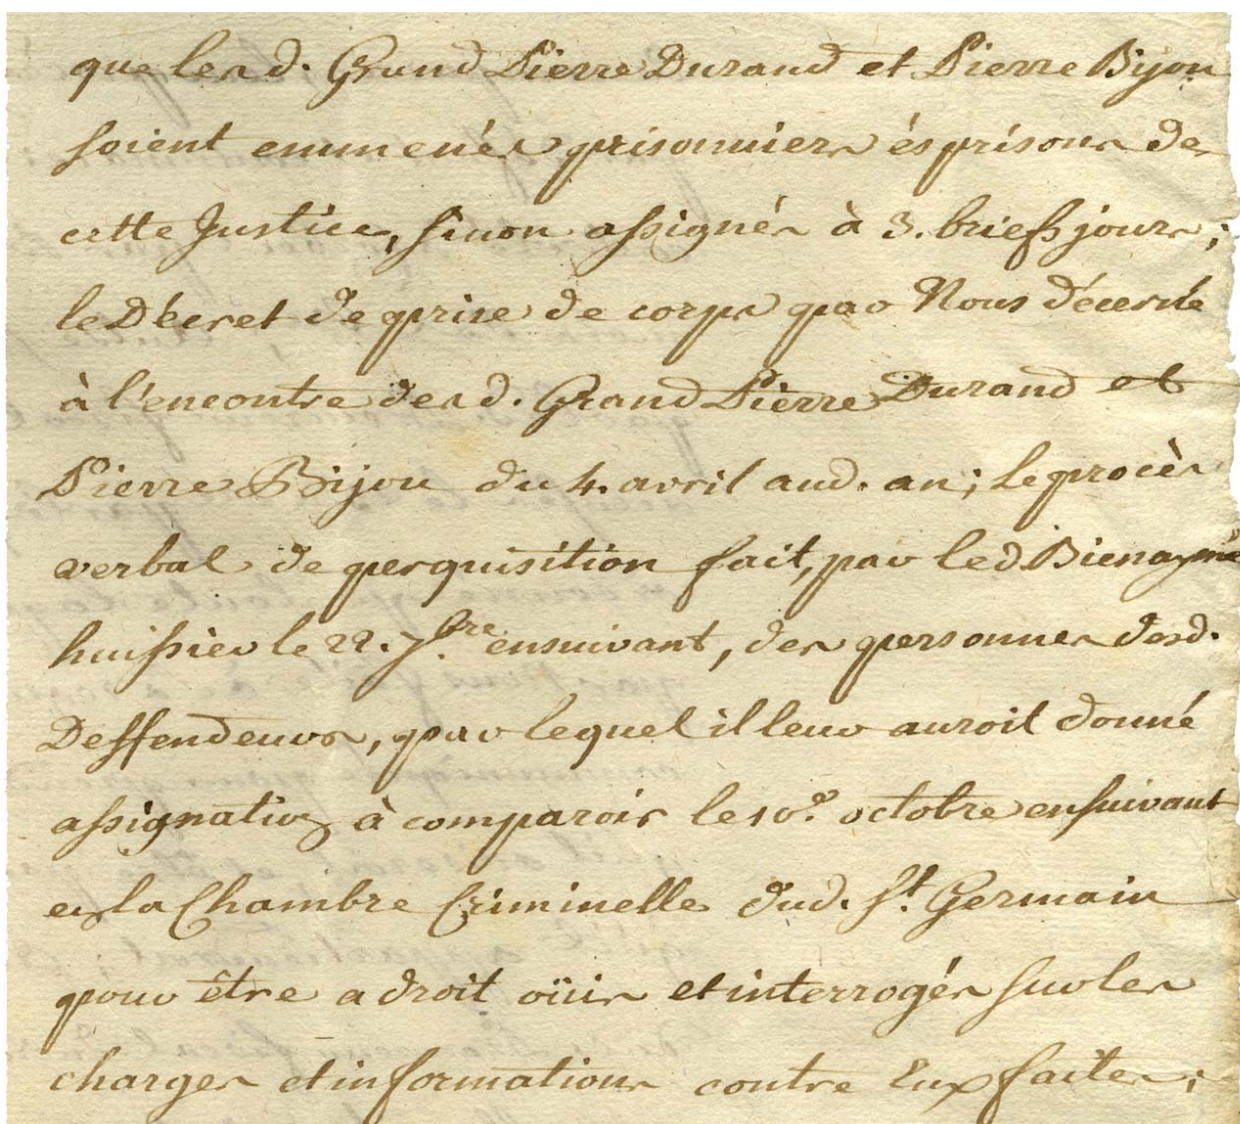 que lesd. Grand Pierre Durand et Pierre Bijou
soient emmenés prisonniers és prisons de
cette Justice, sinon assignés à 3. briefs jours;
le Décret de prise de corps par Nous décerné
à l'encontre desd. Grand Pierre Durand et
Pierre Bijou du 4. avril aud. an; Le procès
verbal de perquisition fait, par led. Bienaymé
huissier le 22. 7.bre ensuivant, des personnes desd.
Deffendeurs, par lequel il leur auroit donné
assignation à comparoir le 10.e octobre ensuivant
en la Chambre Criminelle dud. St. Germain
pour être a droit oüis et interrogés sur les
charges et informations contre Eux faites;